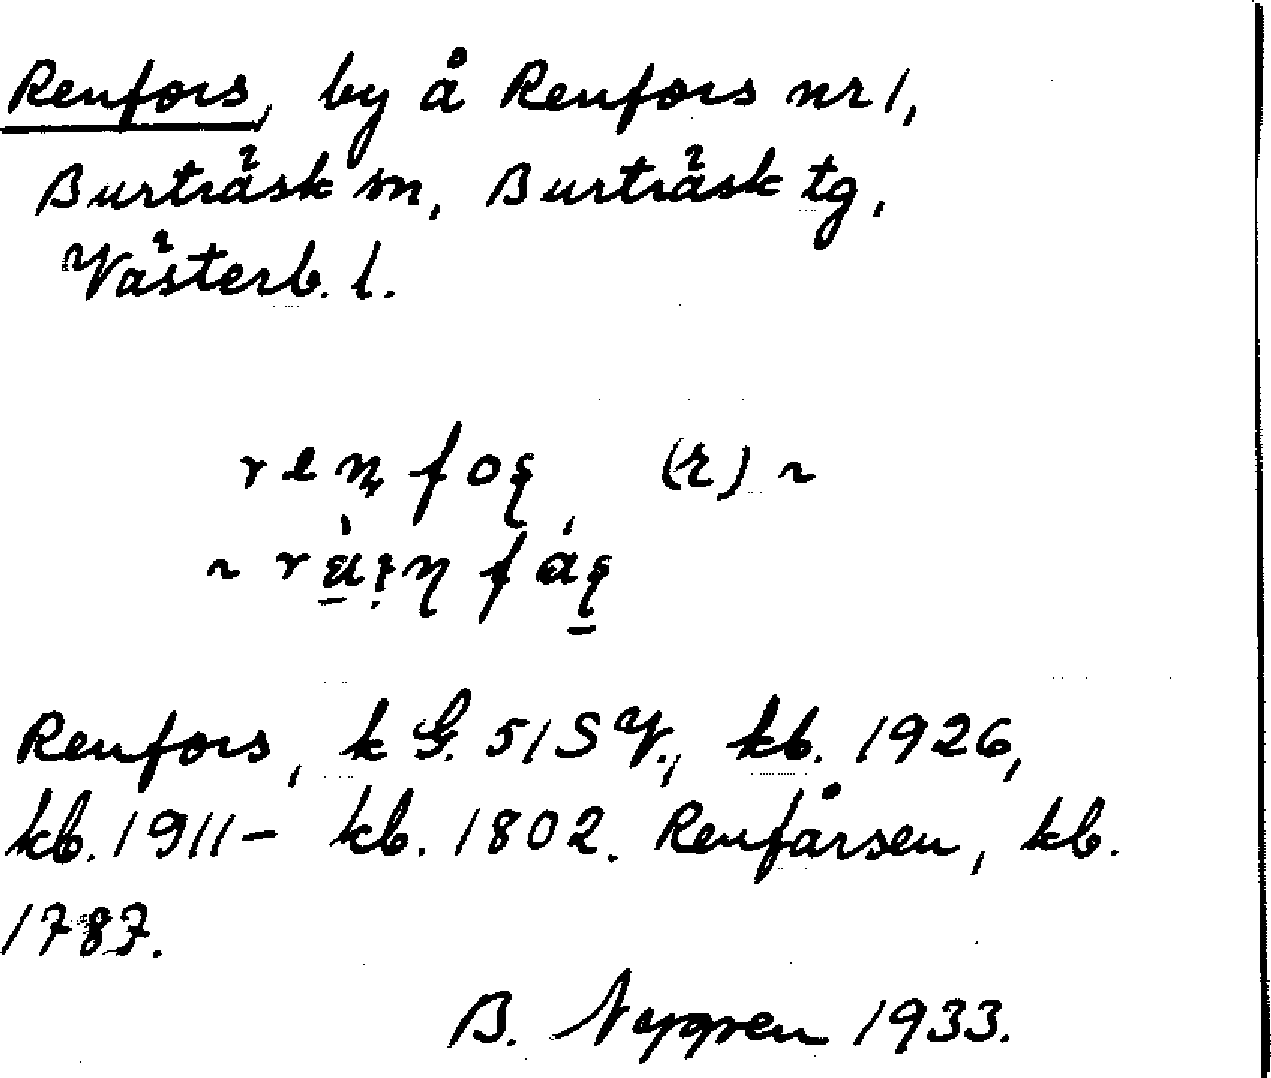 Renfors, by å Renfors nr 1,
Burträsk sn, Burträsk tg,
Västerb. l.
(r) ~
~
Renfors, k G. 51 S V., kb. 1926,
kb. 1911 – kb. 1802. Renfårsen, kb.
1787.
B. Nygren 1933.